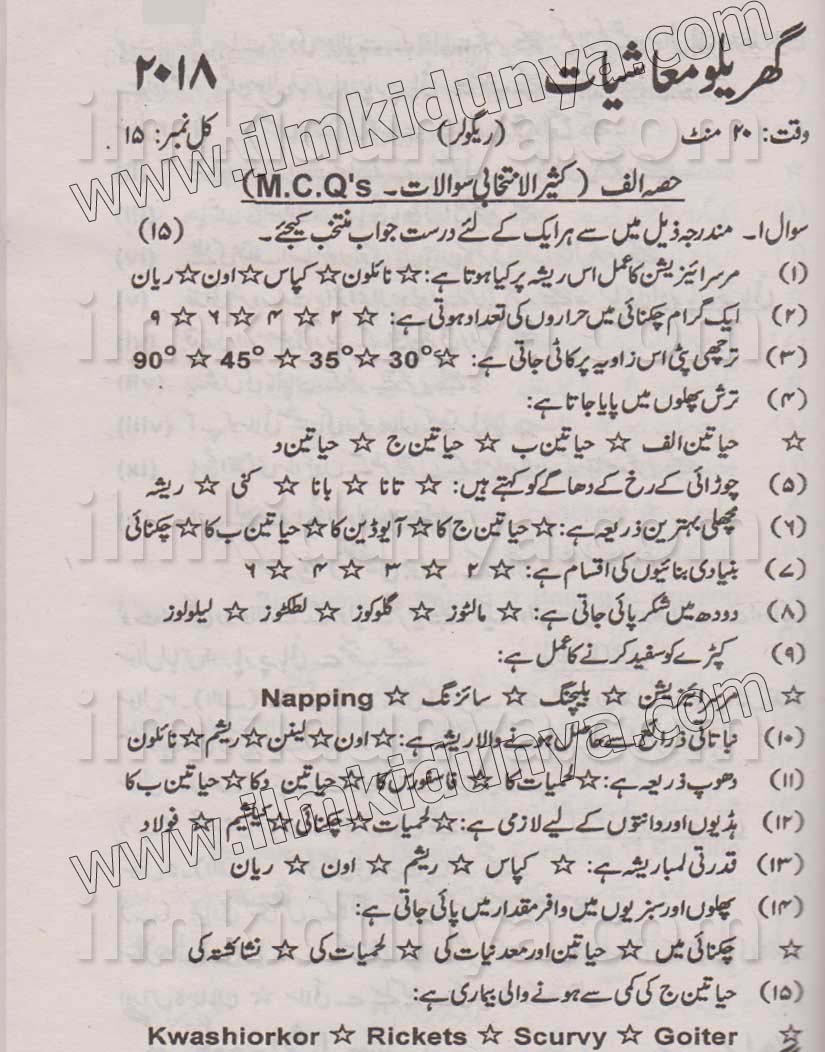 گھریلو معاشیات ۲۰۱۸
وقت: ۲۰ منٹ (ریگولر) کل نمبر: ۱۵
حصہ الف (کثیر الانتخابی سوالات۔ M.C.Q's)
سوال ۱۔ مندرجہ ذیل میں سے ہر ایک کے لئے درست جواب منتخب کیجئے۔ (۱۵)
(۱) مرسرائیزیشن کا عمل اس ریشہ پر کیا ہوتا ہے: ☆ نائلون ☆ کپاس ☆ اون ☆ ریان
(۲) ایک گرام چکنائی میں حراروں کی تعداد ہوتی ہے: ☆ ۲ ☆ ۴ ☆ ۶ ☆ ۹
(۳) ترچھی پٹی اس زاویہ پر کاٹی جاتی ہے: ☆ 30° ☆ 35° ☆ 45° ☆ 90°
(۴) ترش پھلوں میں پایا جاتا ہے:
☆ حیاتین الف ☆ حیاتین ب ☆ حیاتین ج ☆ حیاتین د
(۵) چوڑائی کے رخ کے دھاگے کو کہتے ہیں: ☆ تانا ☆ بانا ☆ کنی ☆ ریشہ
(۶) مچھلی بہترین ذریعہ ہے: ☆ حیاتین ج کا ☆ آیوڈین کا ☆ حیاتین ب کا ☆ چکنائی
(۷) بنیادی بنائیوں کی اقسام ہے: ☆ ۲ ☆ ۳ ☆ ۴ ☆ ۶
(۸) دودھ میں شکر پائی جاتی ہے: ☆ مالٹوز ☆ گلوکوز ☆ لطکٹوز ☆ لیلولوز
(۹) کپڑے کو سفید کرنے کا عمل ہے:
☆ مرسرائیزیشن ☆ بلیچنگ ☆ سائزنگ ☆ Napping
(۱۰) نباتاتی ذرائع سے حاصل ہونے والا ریشہ ہے: ☆ اون ☆ لینن ☆ ریشم ☆ نائلون
(۱۱) دھوپ ذریعہ ہے: ☆ لحمیات کا ☆ فاسفورس کا ☆ حیاتین د کا ☆ حیاتین ب کا
(۱۲) ہڈیوں اور دانتوں کے لیے لازمی ہے: ☆ لحمیات ☆ چکنائی ☆ کیلشیم ☆ فولاد
(۱۳) قدرتی لمبا ریشہ ہے: ☆ کپاس ☆ ریشم ☆ اون ☆ ریان
(۱۴) پھلوں اور سبزیوں میں وافر مقدار میں پائی جاتی ہے:
☆ چکنائی میں ☆ حیاتین اور معدنیات کی ☆ لحمیات کی ☆ نشائشتہ کی
(۱۵) حیاتین ج کی کمی سے ہونے والی بیماری ہے:
☆ Kwashiorkor ☆ Rickets ☆ Scurvy ☆ Goiter
www.ilmkidunya.com
www.ilmkidunya.com
ilmkidunya.com
ilmkidunya.com
ilmkidunya.com
ilmkidunya.com
ilmkidunya.com